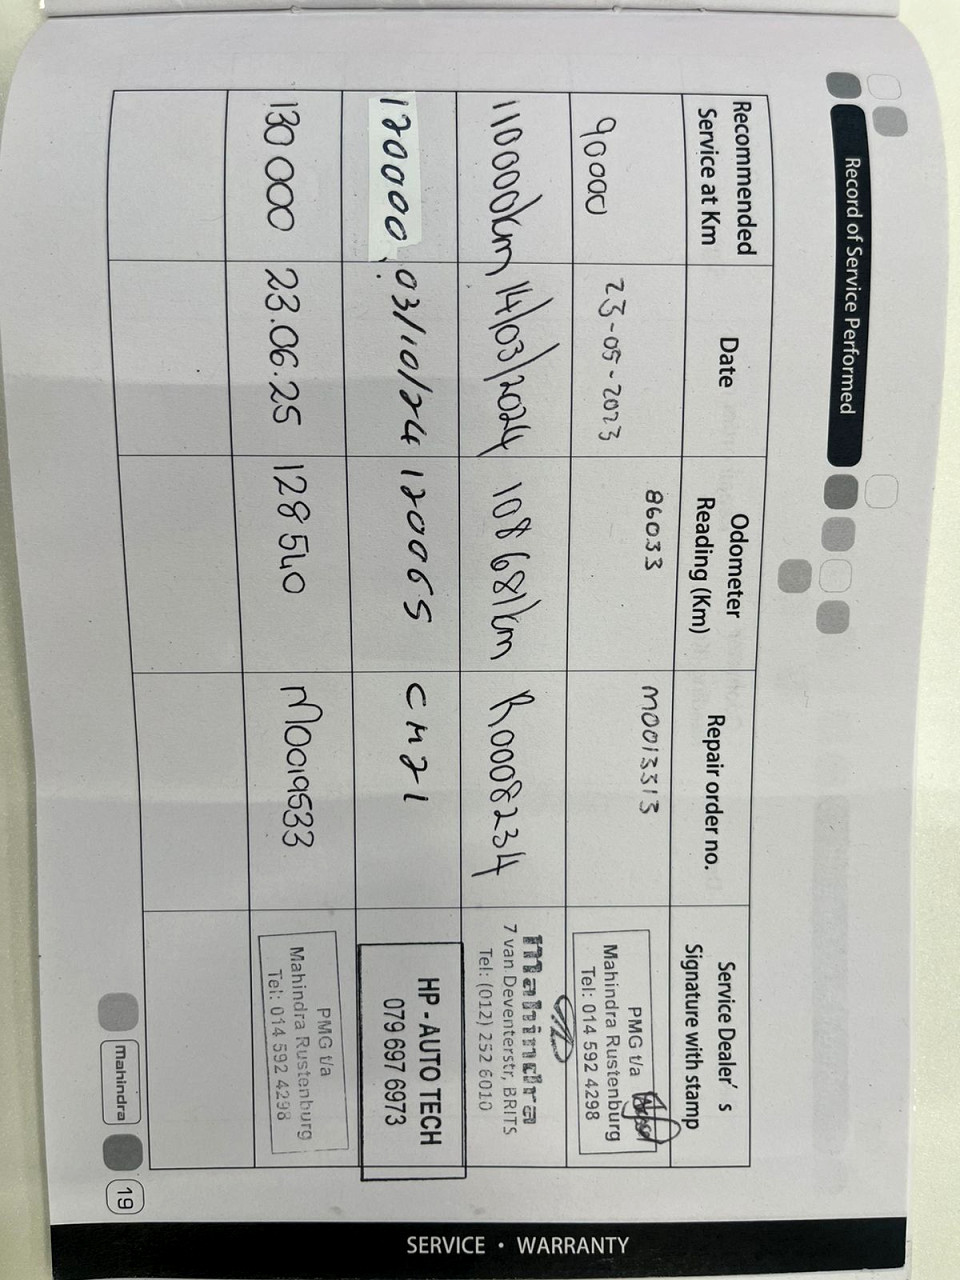 Record of Service Performed
Recommended Service at Km
Date
Odometer Reading (Km)
Repair order no.
Service Dealer's Signature with stamp
90000
23-05-2023
86033
M0013313
PMG t/a
Mahindra Rustenburg
Tel: 014 592 4298
110000km
14/03/2024
108 681km
R0008234
mahindra
7 van Deventerstr, BRITS
Tel: (012) 252 6010
120000
03/10/24
120065
CM21
HP - AUTO TECH
079 697 6973
130 000
23.06.25
128 540
M0019533
PMG t/a
Mahindra Rustenburg
Tel: 014 592 4298
mahindra
19
SERVICE • WARRANTY